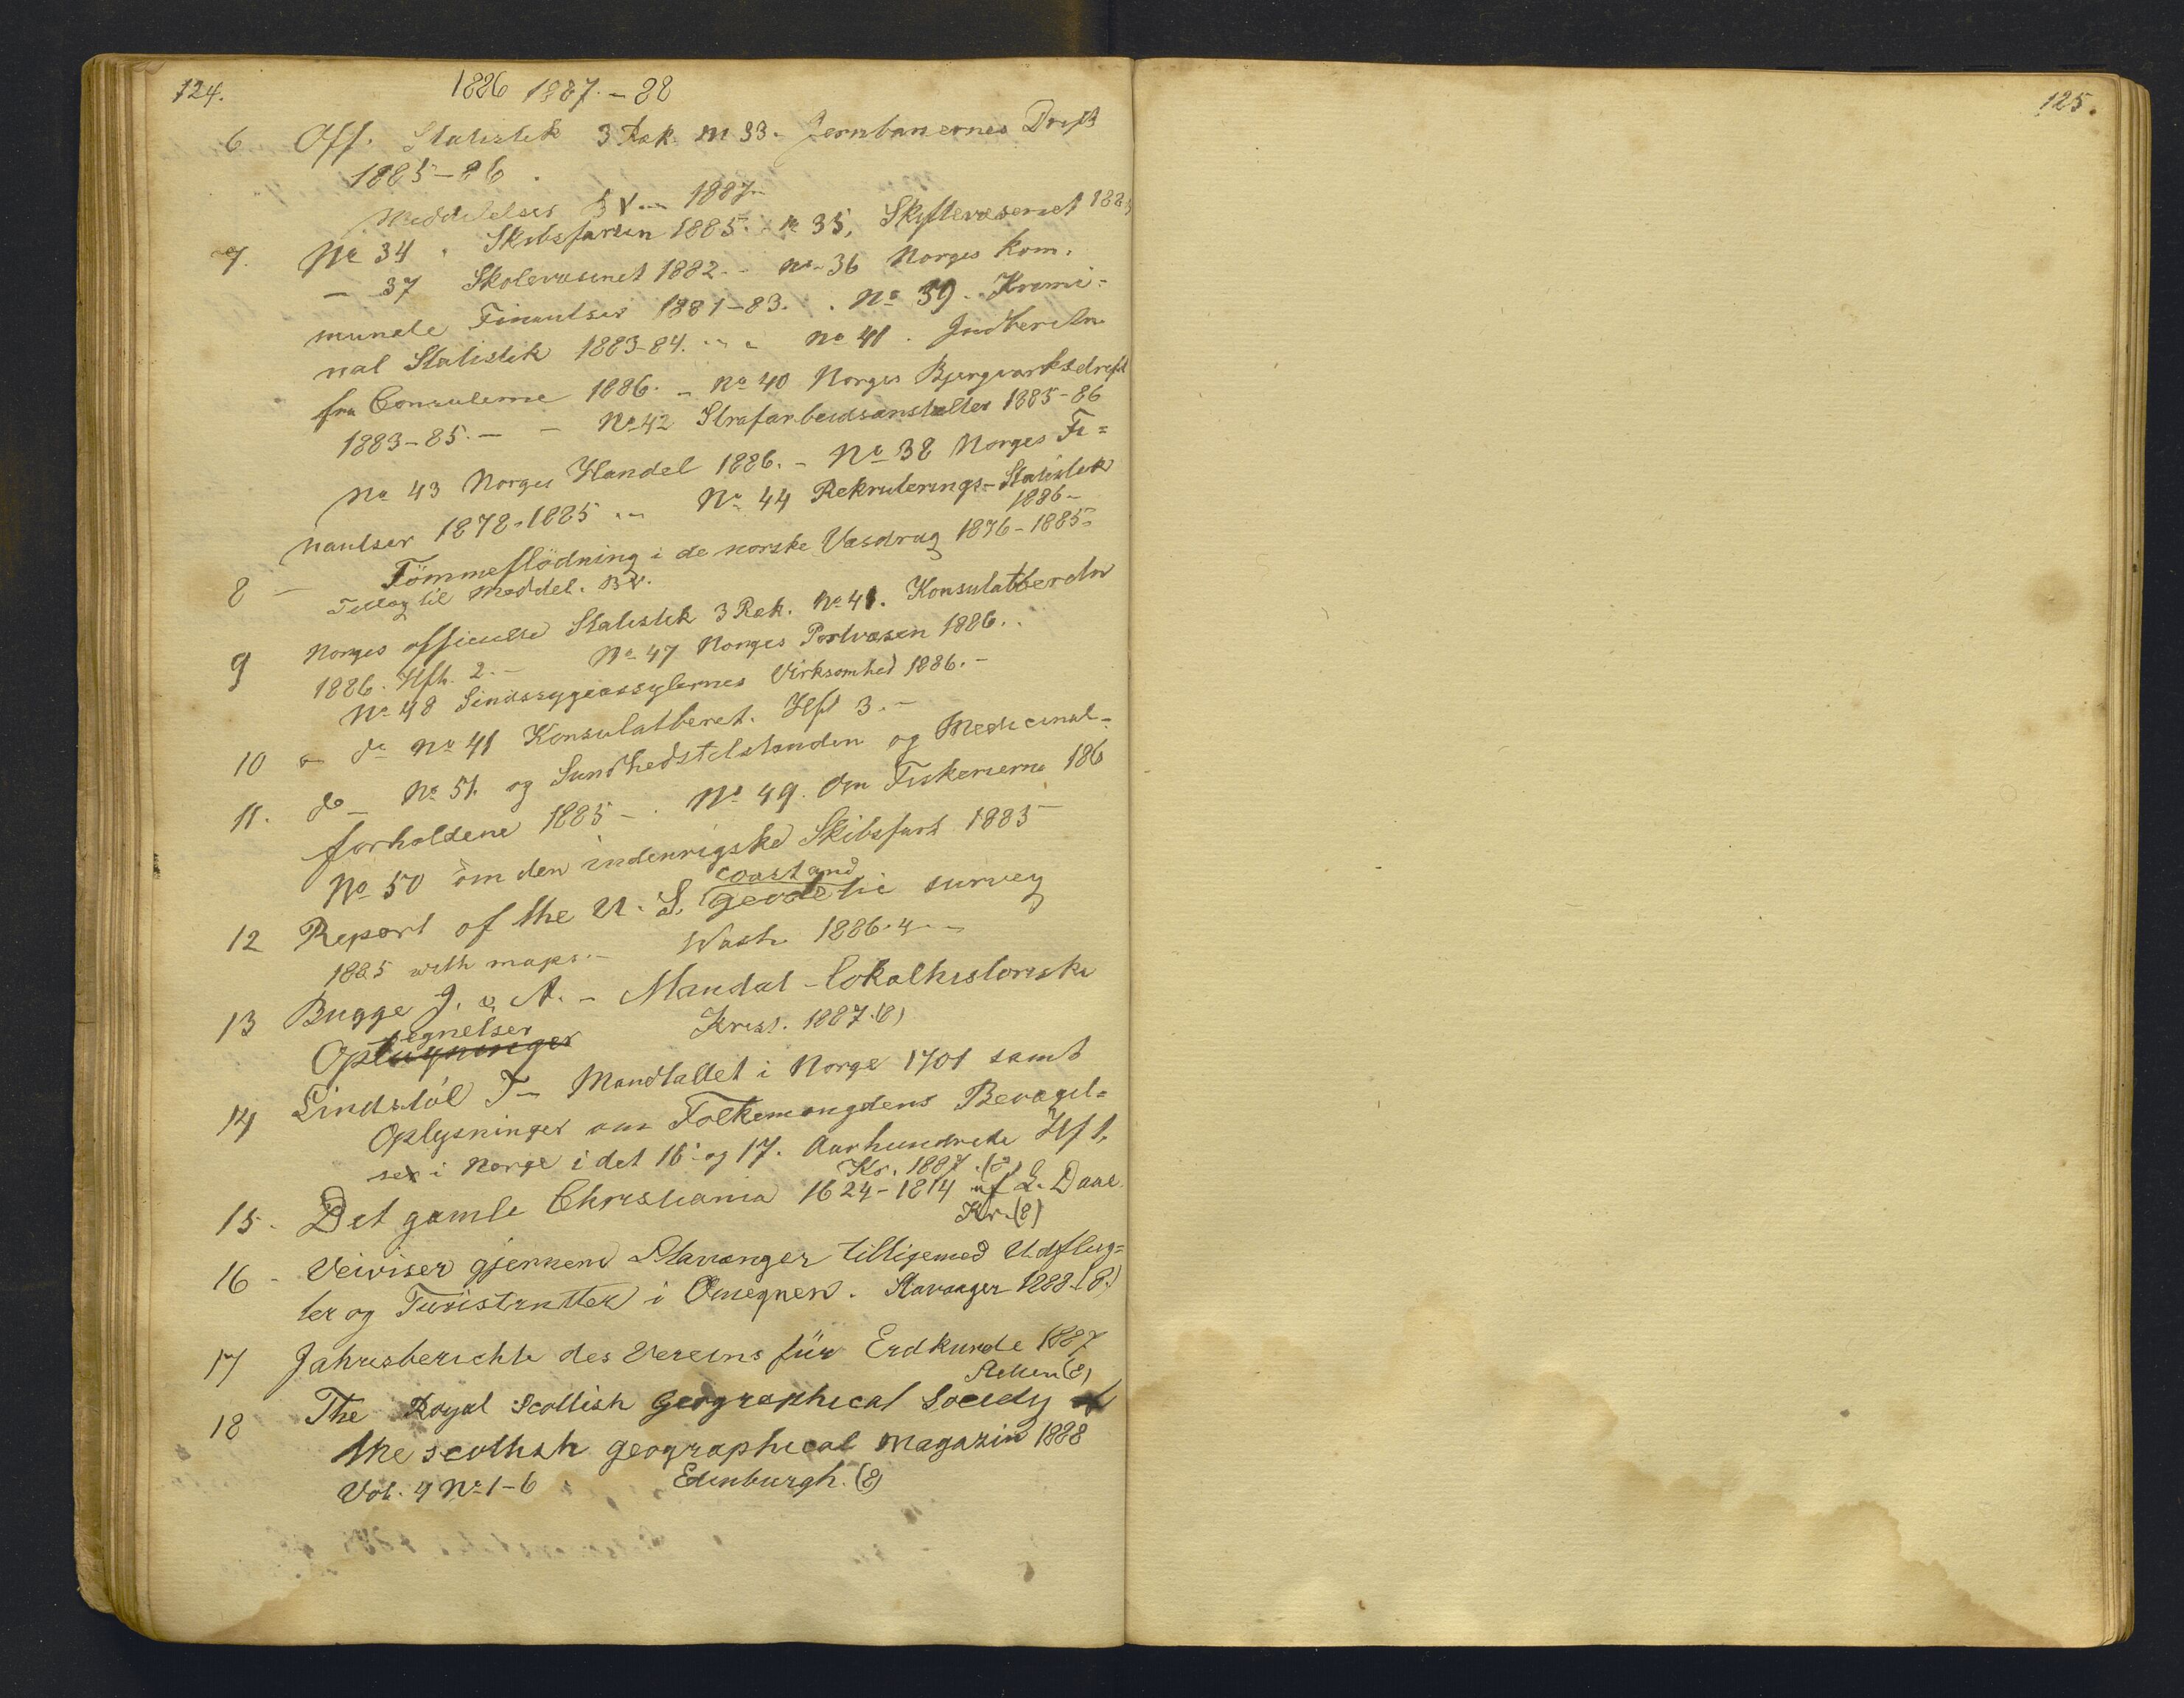 124.
1886 1887.-88
6 Off. Statistik 3 Ræk. No 33. Jernbanernes Drift
1885-86.
Meddelelser B V. 1887.
7. No 34. Skibsfarten 1885. No 35, Skyttevæsenet 188
- 37 Skolevæsenet 1882. - No 36 Norges kom.
munale Finantser 1881-83. . No 39. Krimi=
nal Statistik 1883-84. - No 41. Indberetn
fra Consulerne 1886. - No 40 Norges Bjergværksdrift
1883-85. - - No 42 Strafarbeidsanstalter 1885-86
No 43 Norges Handel 1886. - No 38 Norges Fi=
nantser 1878-1885 - No 44 Rekruterings-Statistik
1886-
8 - Tömmeflödning i de norske Vasdrag 1876-1885.
Tillæg til Meddel. B V.
9 Norges officielle Statistik 3 Ræk. No 41. Konsulatberetn
1886. Hfth. 2. - No 47 Norges Postvæsen 1886..
No 48 Sindssygeassylernes Virksomhed 1886.-
10 - do No 41 Konsulatberet. Hft 3.-
11. do - No 51. og Sundhedstilstanden og Medicinal-
forholdene 1885 - . No 49. Om Fiskerierne 186
No 50 om den indenrigske Skibsfart 1885-
12 Report of the U. S. coast and geodetic survey
1885 with maps.- Wash. 1886. 4. -
13 Bugge J. & A. - Mandal - lokalhistoriske
Optegnelser Krist. 1887.(8)
14 Lindstöl T- Mandtallet i Norge 1701 samt
Oplysninger om Folkemængdens Bevægel=
ser i Norge i det 16 og 17. Aarhundrede Hft 1.
Kr. 1887.(8)
15. Det gamle Christiania 1624-1814 af L. Daae.
Kr.(8)
16 - Veiviser gjennem Stavanger tilligemed Udflug=
ter og Turistrutter i Omegnen. Stavanger 1888.(8.)
17 Jahresberichte des Vereins für Erdkunde 1887
(8)
18 The Royal Scottish Geographical Society
the scottish geographical Magazin 1888
Vol. 4 No 1-6 Edinburgh. (8)
125.